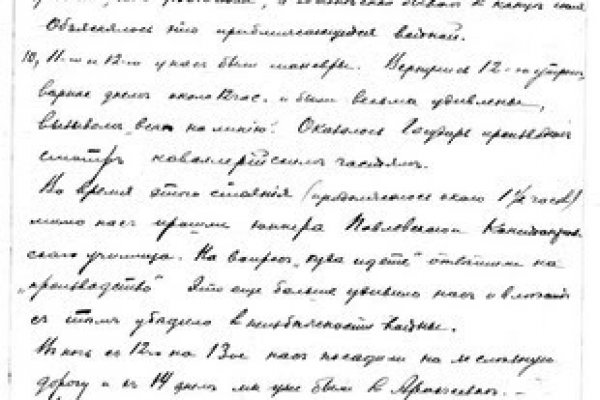 Объяснялось это приближающейся войной.
10, 11-го и 12-го у нас были маневры. Вернулись 12-го утром,
вернее днем около 12 час. и были весьма удивлены,
вызовом „всех на линию". Оказалось Государь производил
смотр кавалерийским частям.
Во время этого стояния (продолжалось около 1½ часов)
мимо нас прошли юнкера Павловского
училища. На вопрос „куда идете" ответили на
„производство" Это еще больше удивило нас и
с тем убедило в неизбежности войны.
В ночь с 12го на 13ое нас посадили на железную
дорогу и 14 днем мы уже были в